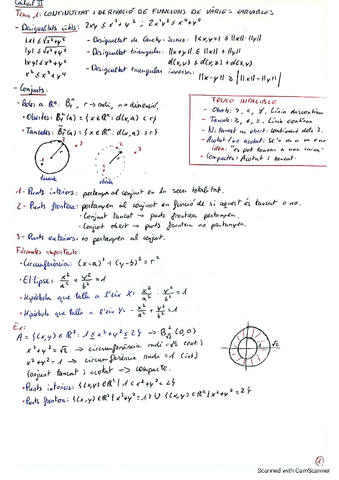 Càlcul II
Tema 1: CONTINUÏTAT I DERIVACIÓ DE FUNCIONS DE VÀRIES VARIABLES
- Desigualtats útils: 2xy ≤ x² + y² ; 2x²y² ≤ x⁴ + y⁴
|x| ≤ √x²+y²
- Desigualtat de Cauchy-Schwarz: |<x,y>| ≤ ||x||·||y||
|y| ≤ √x²+y²
- Desigualtat triangular: ||x+y|| ≤ ||x|| + ||y||
|xy| ≤ x²+y²
x² ≤ x²+y²
- Desigualtat triangular inversa:
||x-y|| ≥ | ||x|| - ||y|| |
- Conjunts:
Boles a ℝⁿ: r → radi, n → dimensió.
• Obertes: = {x ∈ ℝⁿ: d(x,a) < r}
• Tancades: = {x ∈ ℝⁿ: d(x,a) ≤ r}
TRUCO INFALIBLE
- Oberts: >, <, ≠. Línia discontínua
- Tancats: ≥, ≤, =. Línia contínua
- Ni tancat ni obert: combinació dels 2.
- Compactes: Acotat i tancat.
tancada
oberta
1 - Punts interiors: pertanyen al conjunt en la seva totalitat.
2 - Punts frontera: pertanyen al conjunt en funció de si aquest és tancat o no.
• Conjunt tancat → punts frontera pertanyen.
• Conjunt obert → punts frontera no pertanyen.
3 - Punts exteriors: no pertanyen al conjunt.
Fórmules importants:
• Circumferència: (x-a)² + (y-b)² = r²
• El·lipse: x²/a² + y²/b² = 1
• Hipèrbola que talla a l'eix X: x²/a² - y²/b² = 1
• Hipèrbola que talla a l'eix Y: - x²/a² + y²/b² = 1
Ex:
A = {(x,y) ∈ ℝ²: 1 ≤ x²+y² ≤ 2} → (0,0)
x²+y² = √2 → circumferència radi = √2 (ext.)
x²+y² = 1 → circumferència radi = 1 (int.)
Conjunt tancat i acotat → compacte.
• Punts interiors: {(x,y) ∈ ℝ² | 1 < x²+y² < 2}
• Punts frontera: {(x,y) ∈ ℝ² | x²+y² = 1} ∪ {(x,y) ∈ ℝ² | x²+y² = 2}
1
Scanned with CamScanner